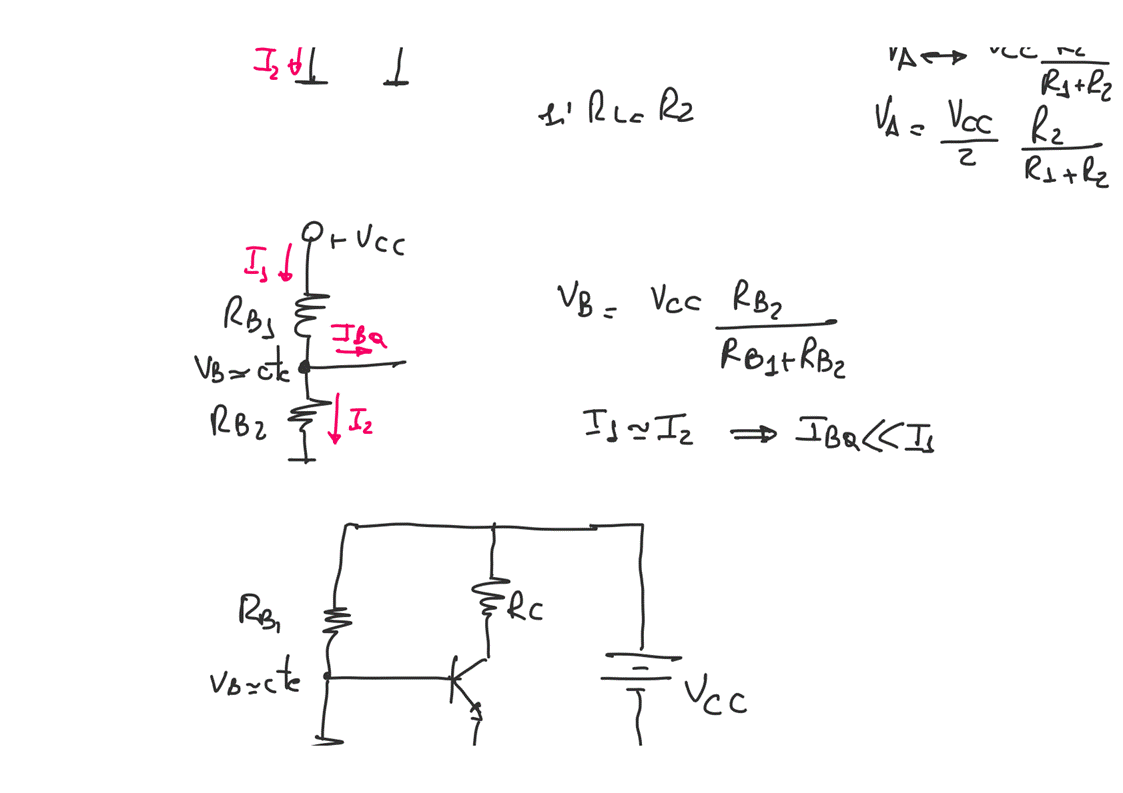 I₂
V_A ↔ V_CC R₂ / (R₁+R₂)
si R_L = R₂
V_A = V_CC / 2 R₂ / (R₁+R₂)
+V_CC
I₁
R_B₁
I_BQ
V_B ≃ cte
R_B₂
I₂
V_B = V_CC R_B₂ / (R_B₁+R_B₂)
I₁ ≃ I₂ ⇒ I_BQ << I₁
R_B₁
R_C
V_B ≃ cte
V_CC